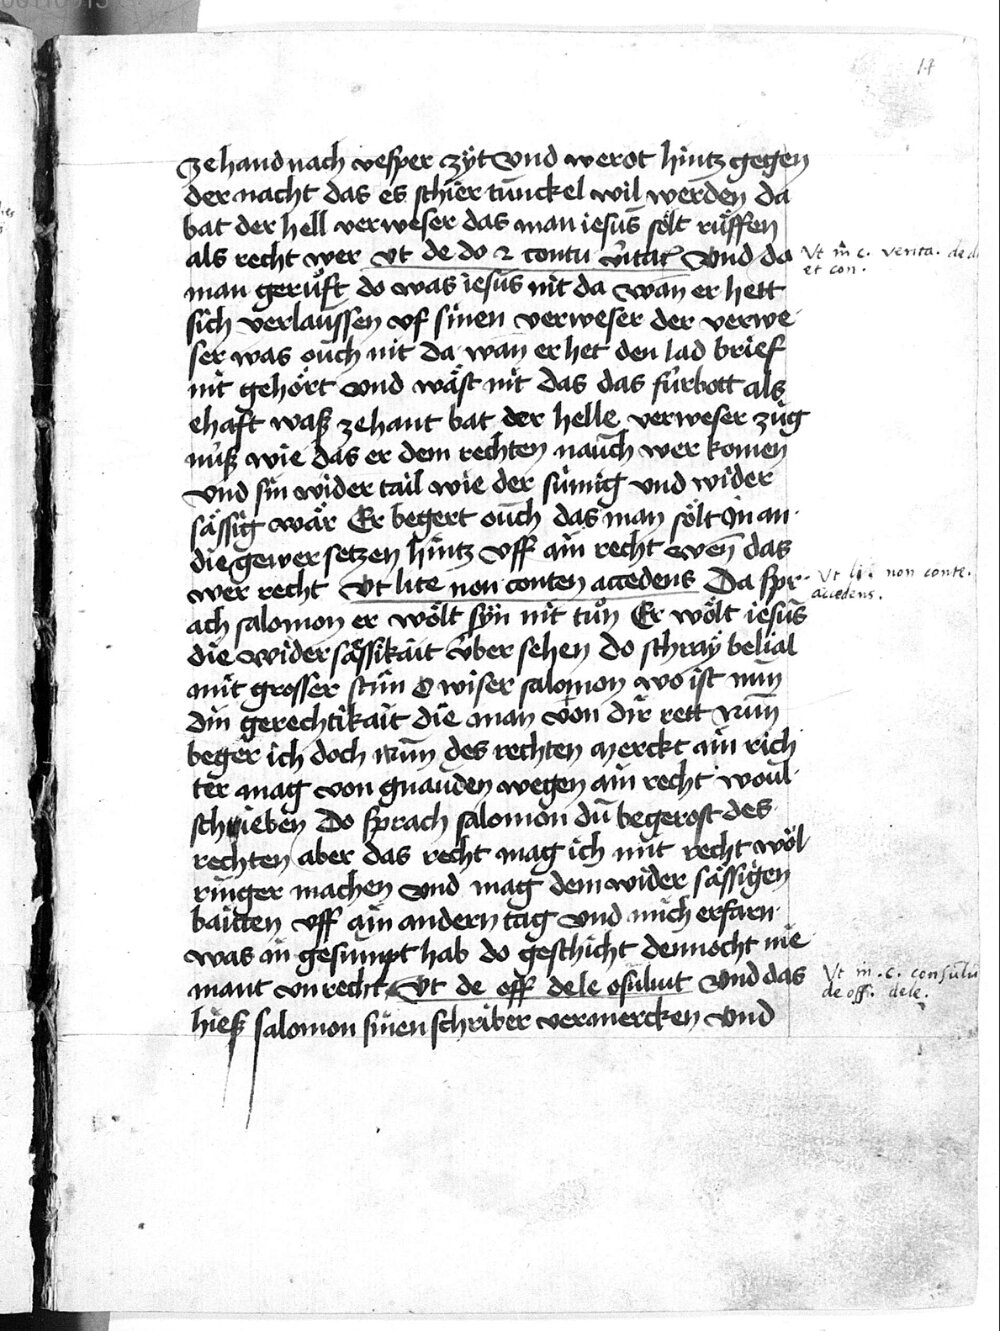 14
zehand nach vesper zÿt vnd werot hintz gegen
der nacht das es schier tunckel wil werden da
bat der hell verweser das man iesus sölt rüffen
als recht wer vt de do 2 contu v̈itat vnd do
Vt in c. verita. de d
et con.
man gerůft do was iesus nit da wan er hett
sich verlaussen vf sinen verweser der verwe
ser was ouch nit da wan er het den lad brief
nit gehört vnd wäst nit das das fürbott als
ehaft wasz zehant bat der helle verweser züg
nüsz wie das er dem rechten nauch wer komen
vnd sin wider tail wie der sümig vnd wider
sässig wär Er begert ouch das man sölt in an
die gewer setzen hintz vff ain recht even das
wer recht Vt lite non conten accedens Da spr
Vt li. non conte.
accedens.
ach salomon er wölt sÿn nit tůn Er wölt iesus
die wider sässikait über sehen Do schraÿ belial
mit grosser stim O wiser salomon wo ist nun
din gerechtikait die man von dir rett num̄
beger ich doch num̄ des rechten merckt ain rich
ter mag von gnauden wegen ain recht woul
schrieben Do sprach salomon dū begerost des
rechten aber das recht mag ich mit recht wöl
ringer machen vnd mag dem wider sässigen
baitten vff ain andern tag vnd mich erfarn
was in gesumpt hab do geschicht dennocht nie
mant vnrecht Vt de off dele osuluit vnd das
Vt in .c. consulu
de off. dele.
hiesz salomon sinen schriber vermercken vnd